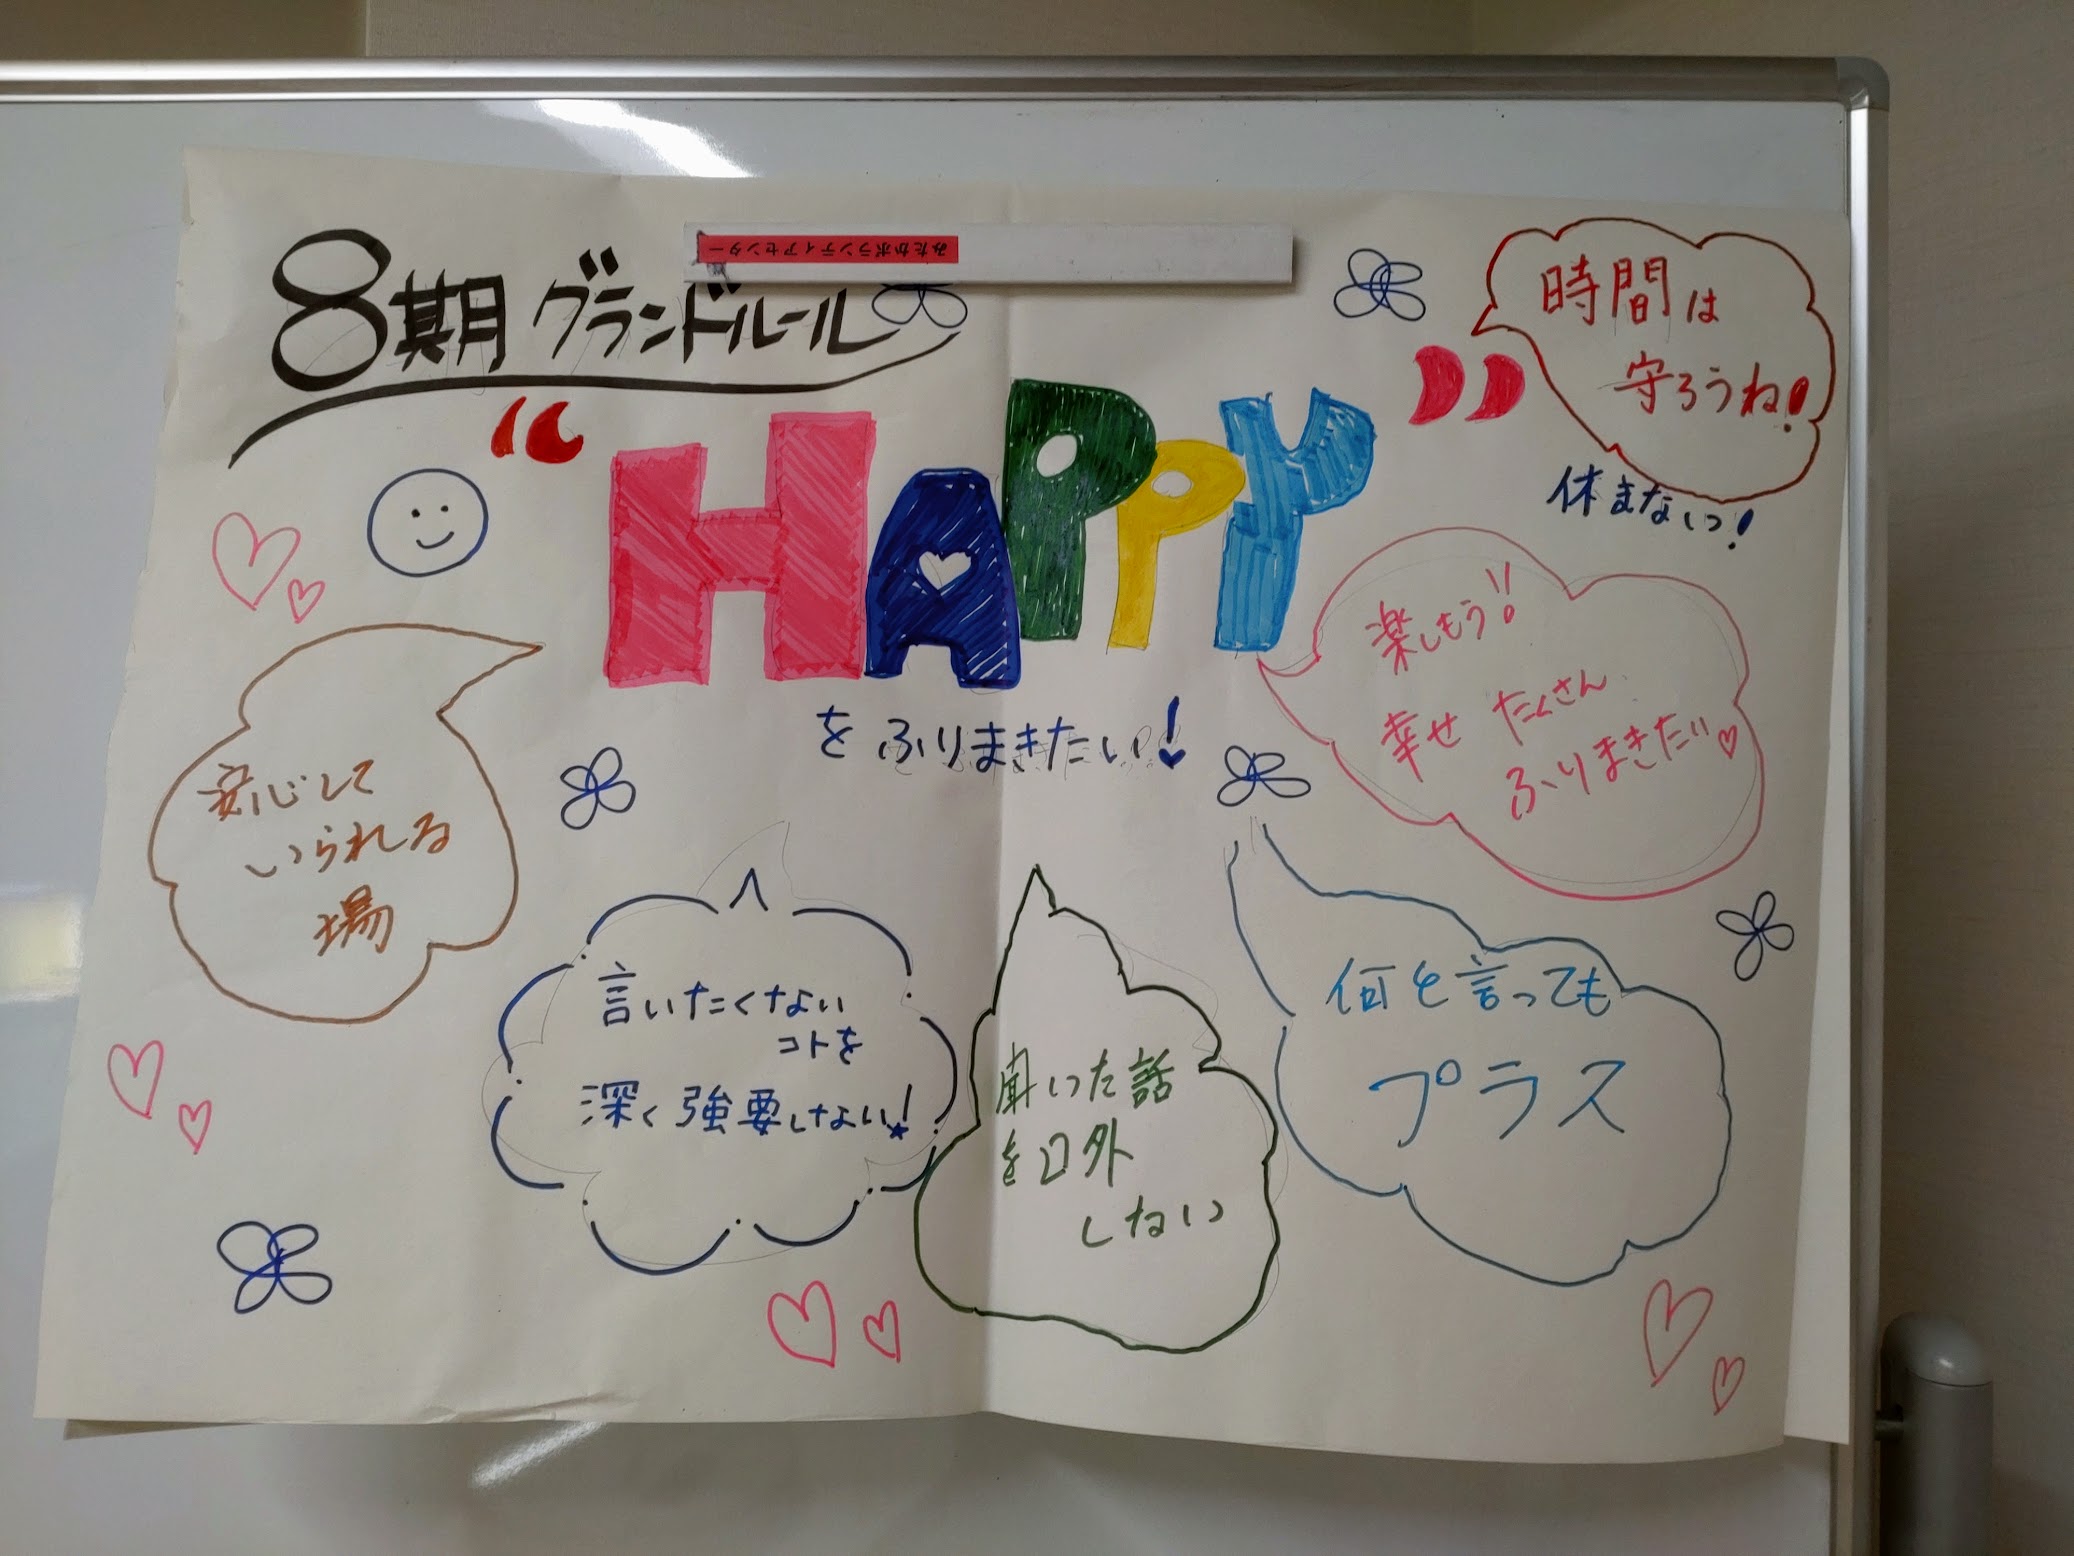 みたかボランティアセンター
8期 グランドルール
"HAPPY"
をふりまきたい!
時間は
守ろうね!
休まないっ!
楽しもう!!
幸せ たくさん
ふりまきたい♡
安心して
いられる
場
言いたくない
コトを
深く強要しない!
聞いた話
を口外
しない
何を言っても
プラス